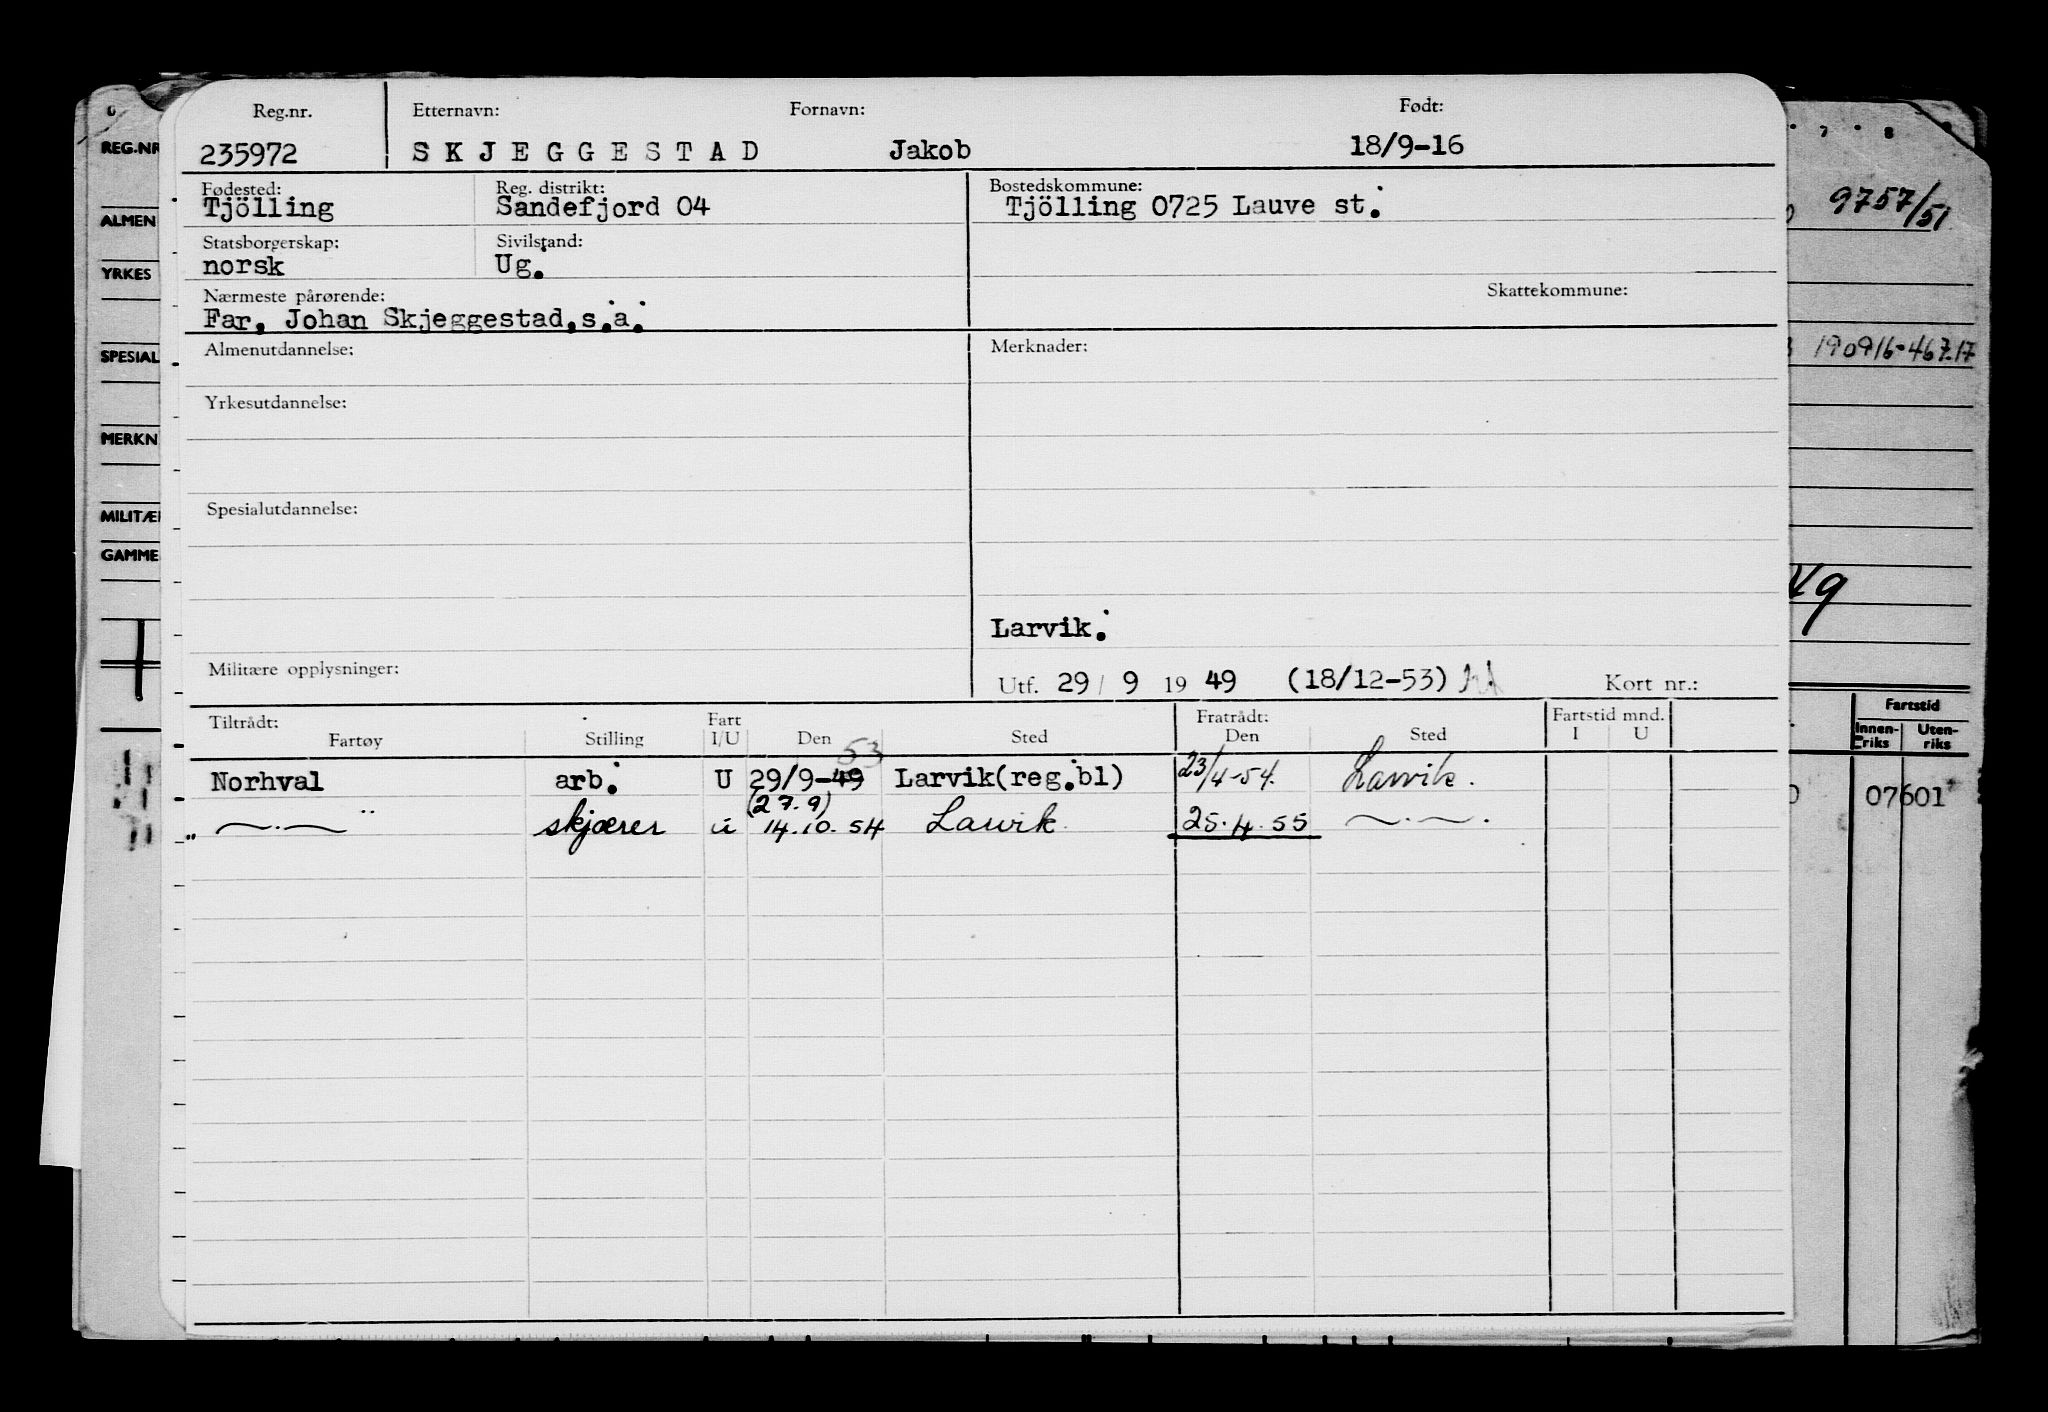 Reg.nr. Etternavn: Fornavn: Født:
235972 SKJEGGESTAD Jakob 18/9-16
Fødested: Reg. distrikt: Bostedskommune:
Tjölling Sandefjord 04 Tjölling 0725 Lauve st.
Statsborgerskap: Sivilstand:
norsk Ug.
Nærmeste pårørende: Skattekommune:
Far, Johan Skjeggestad,s.a.
Almenutdannelse: Merknader:
Yrkesutdannelse:
Spesialutdannelse:
Larvik.
Militære opplysninger:
Utf. 29/ 9 19 49 (18/12-53) Kort nr.:
Tiltrådt: Fart Fratrådt: Fartstid mnd.
Fartøy Stilling I/U Den Sted Den Sted I U
53
Norhval arb. U 29/9-49 Larvik(reg.bl) 23/4-54. Larvik.
(27.9)
" —.— " skjærer u 14.10.54 Larvik 25.4.55 —.—.
REG.NR
ALMEN
YRKES
SPESIAL
MERKN
MILITÆ
GAMME
7 8
9757/51
190916-467.17
49
Fartstid
Innen-
riks
Uten-
riks
07601